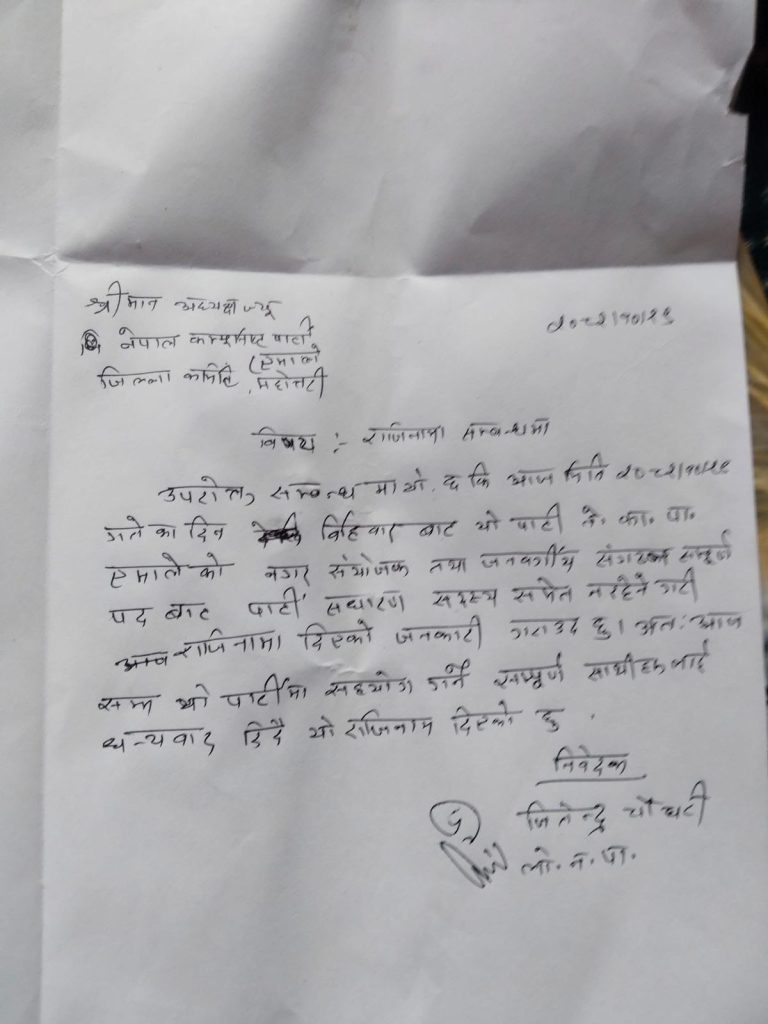 श्रीमान अध्यक्ष ज्यू
२०८२।१०।१६
नेपाल कम्युनिष्ट पार्टी
(एमाले
जिल्ला कमिटि, महोत्तरी
विषय :- राजिनामा सम्बन्धमा
उपरोक्त सम्बन्ध मा यो छ कि आज मिति २०८२।१०।१६
गते का दिन बिहिवार बाट यो पार्टी ने. का. पा.
एमाले को नगर संयोजक तथा जनवर्गीय संगठन सम्पूर्ण
पद बाट पार्टी सधारण सदस्य समेत नरहेने गरी
राजिनामा दिएको जनकारी गराउद छु। अत: आज
सम्म यो पार्टीमा सहयोग गर्ने सम्पूर्ण साथीहरु लाई
धन्यवाद दिदै यो राजिनाम दिएको छु .
निवेदक
जितेन्द्र चौधरी
लो. न. पा.